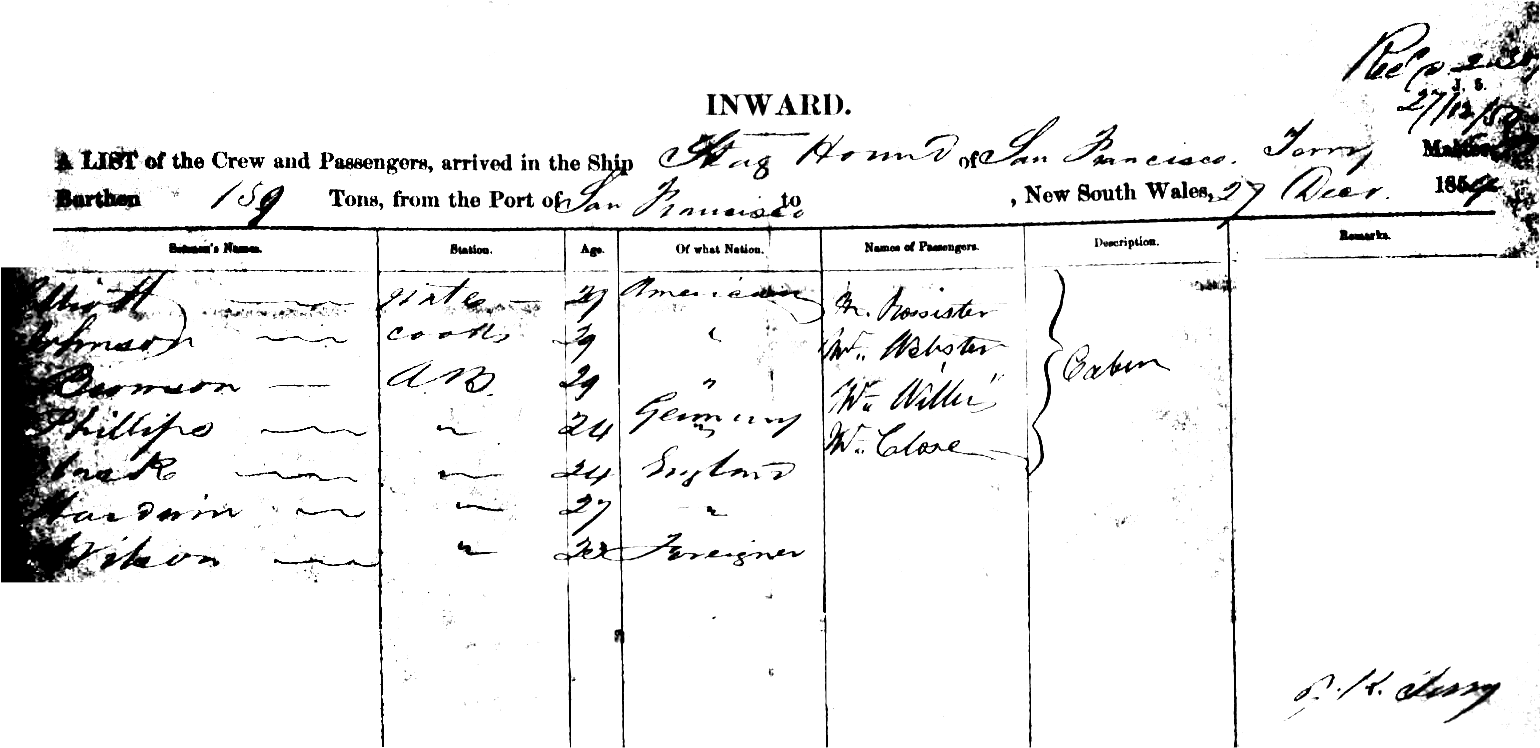 Rec'd
J. 5.
27/12/50
INWARD.
A LIST of the Crew and Passengers, arrived in the Ship Stag Hound of San Francisco. Terry Master
Burthen 159 Tons, from the Port of San Francisco to , New South Wales, 27 Decr. 1850
Seamen's Names. Station. Age. Of what Nation. Names of Passengers. Description. Remarks.
Elliott mate 27 American Mr. Rossister
Johnson cook 29 " Mr. Webster
Bromson A.B. 29 " Mr. Willis Cabin
Phillips " 24 Germany Mr. Close
" 24 England
" 27 "
Wilson " Foreigner
Terry